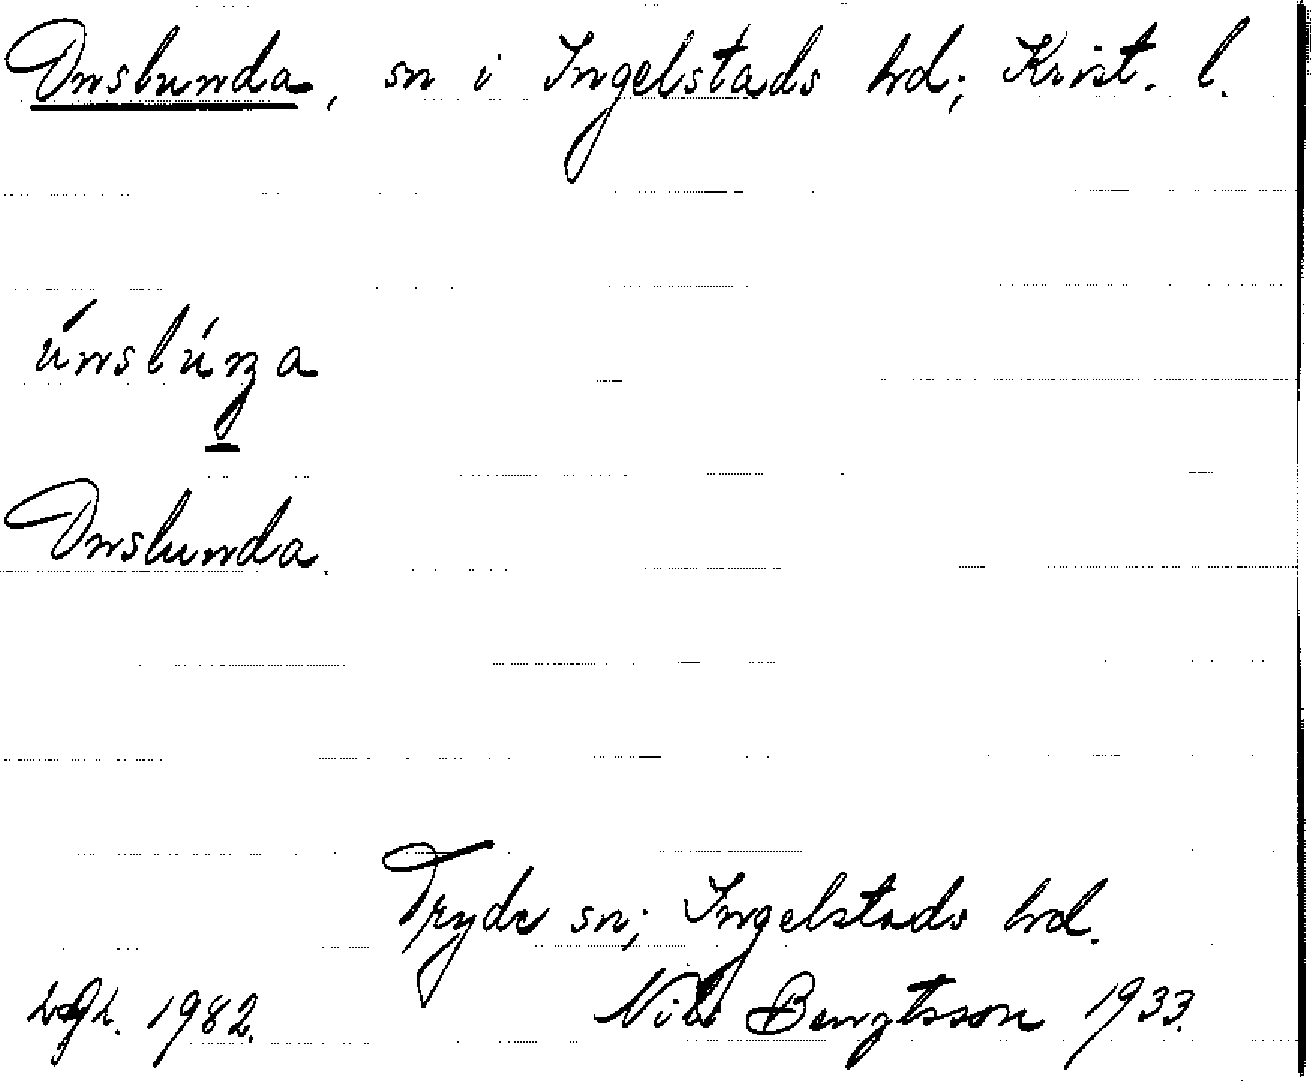 Onslunda, sn i Ingelstads hd; Krist. l.
únslúnа
Onslunda.
Tryde sn; Ingelstads hd.
1982. Nils Bengtsson 1933.